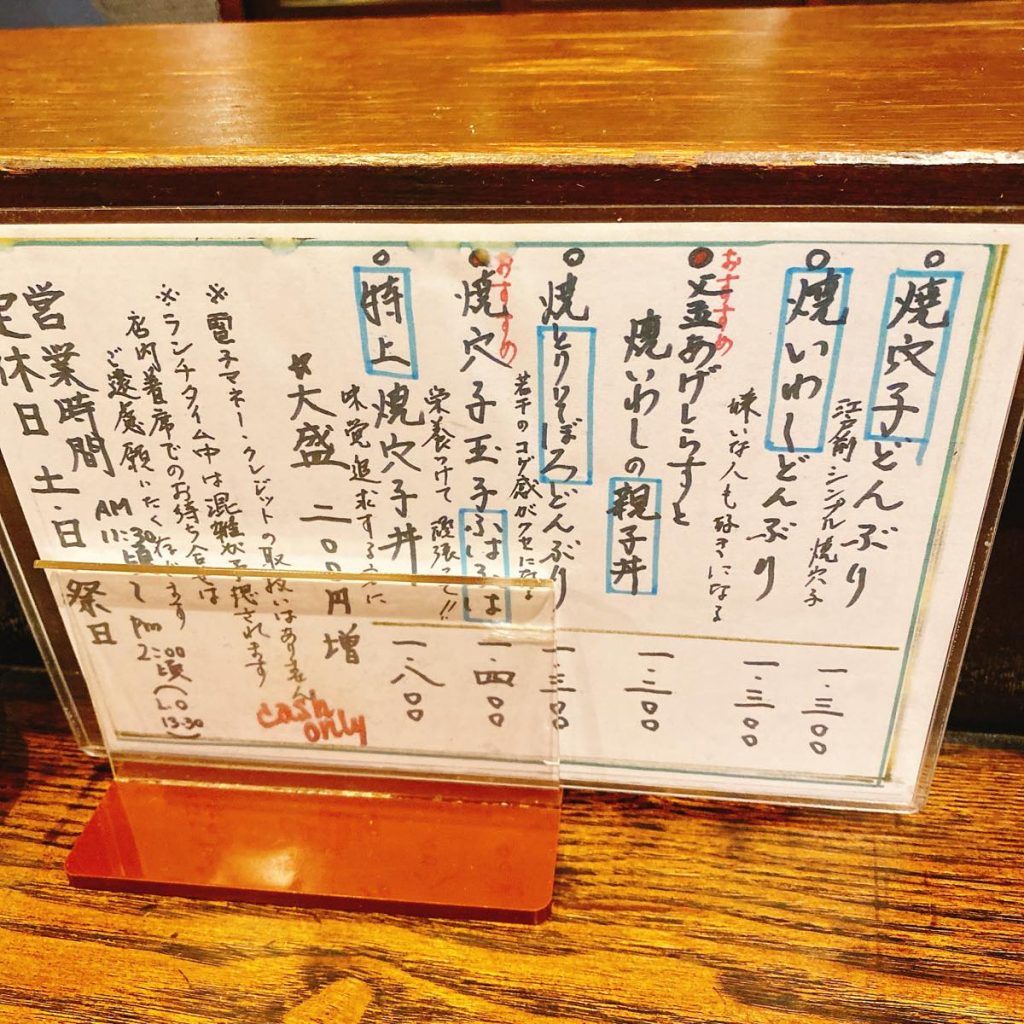 焼穴子どんぶり
江戸前シンプル焼穴子
一.三〇〇
焼いわしどんぶり
嫌いな人も好きになる
一.三〇〇
おすすめ
釜あげしらすと
焼いわしの親子丼
一.三〇〇
焼とりそぼろどんぶり
若干のコゲ感がクセになる
一.三〇〇
おすすめ
焼穴子玉子ふはふは
栄養つけて頑張って!!
一.四〇〇
特上焼穴子丼
味覚追求する方に
一.八〇〇
大盛二〇〇円増
※電子マネー・クレジットの取扱いはありません
cash only
※ランチタイム中は混雑が予想されます
店内着席でのお待ち合せは
ご遠慮願いたく存じます
営業時間 AM 11:30頃〜PM 2:00頃(L.O 13:30)
定休日 土・日 祭日